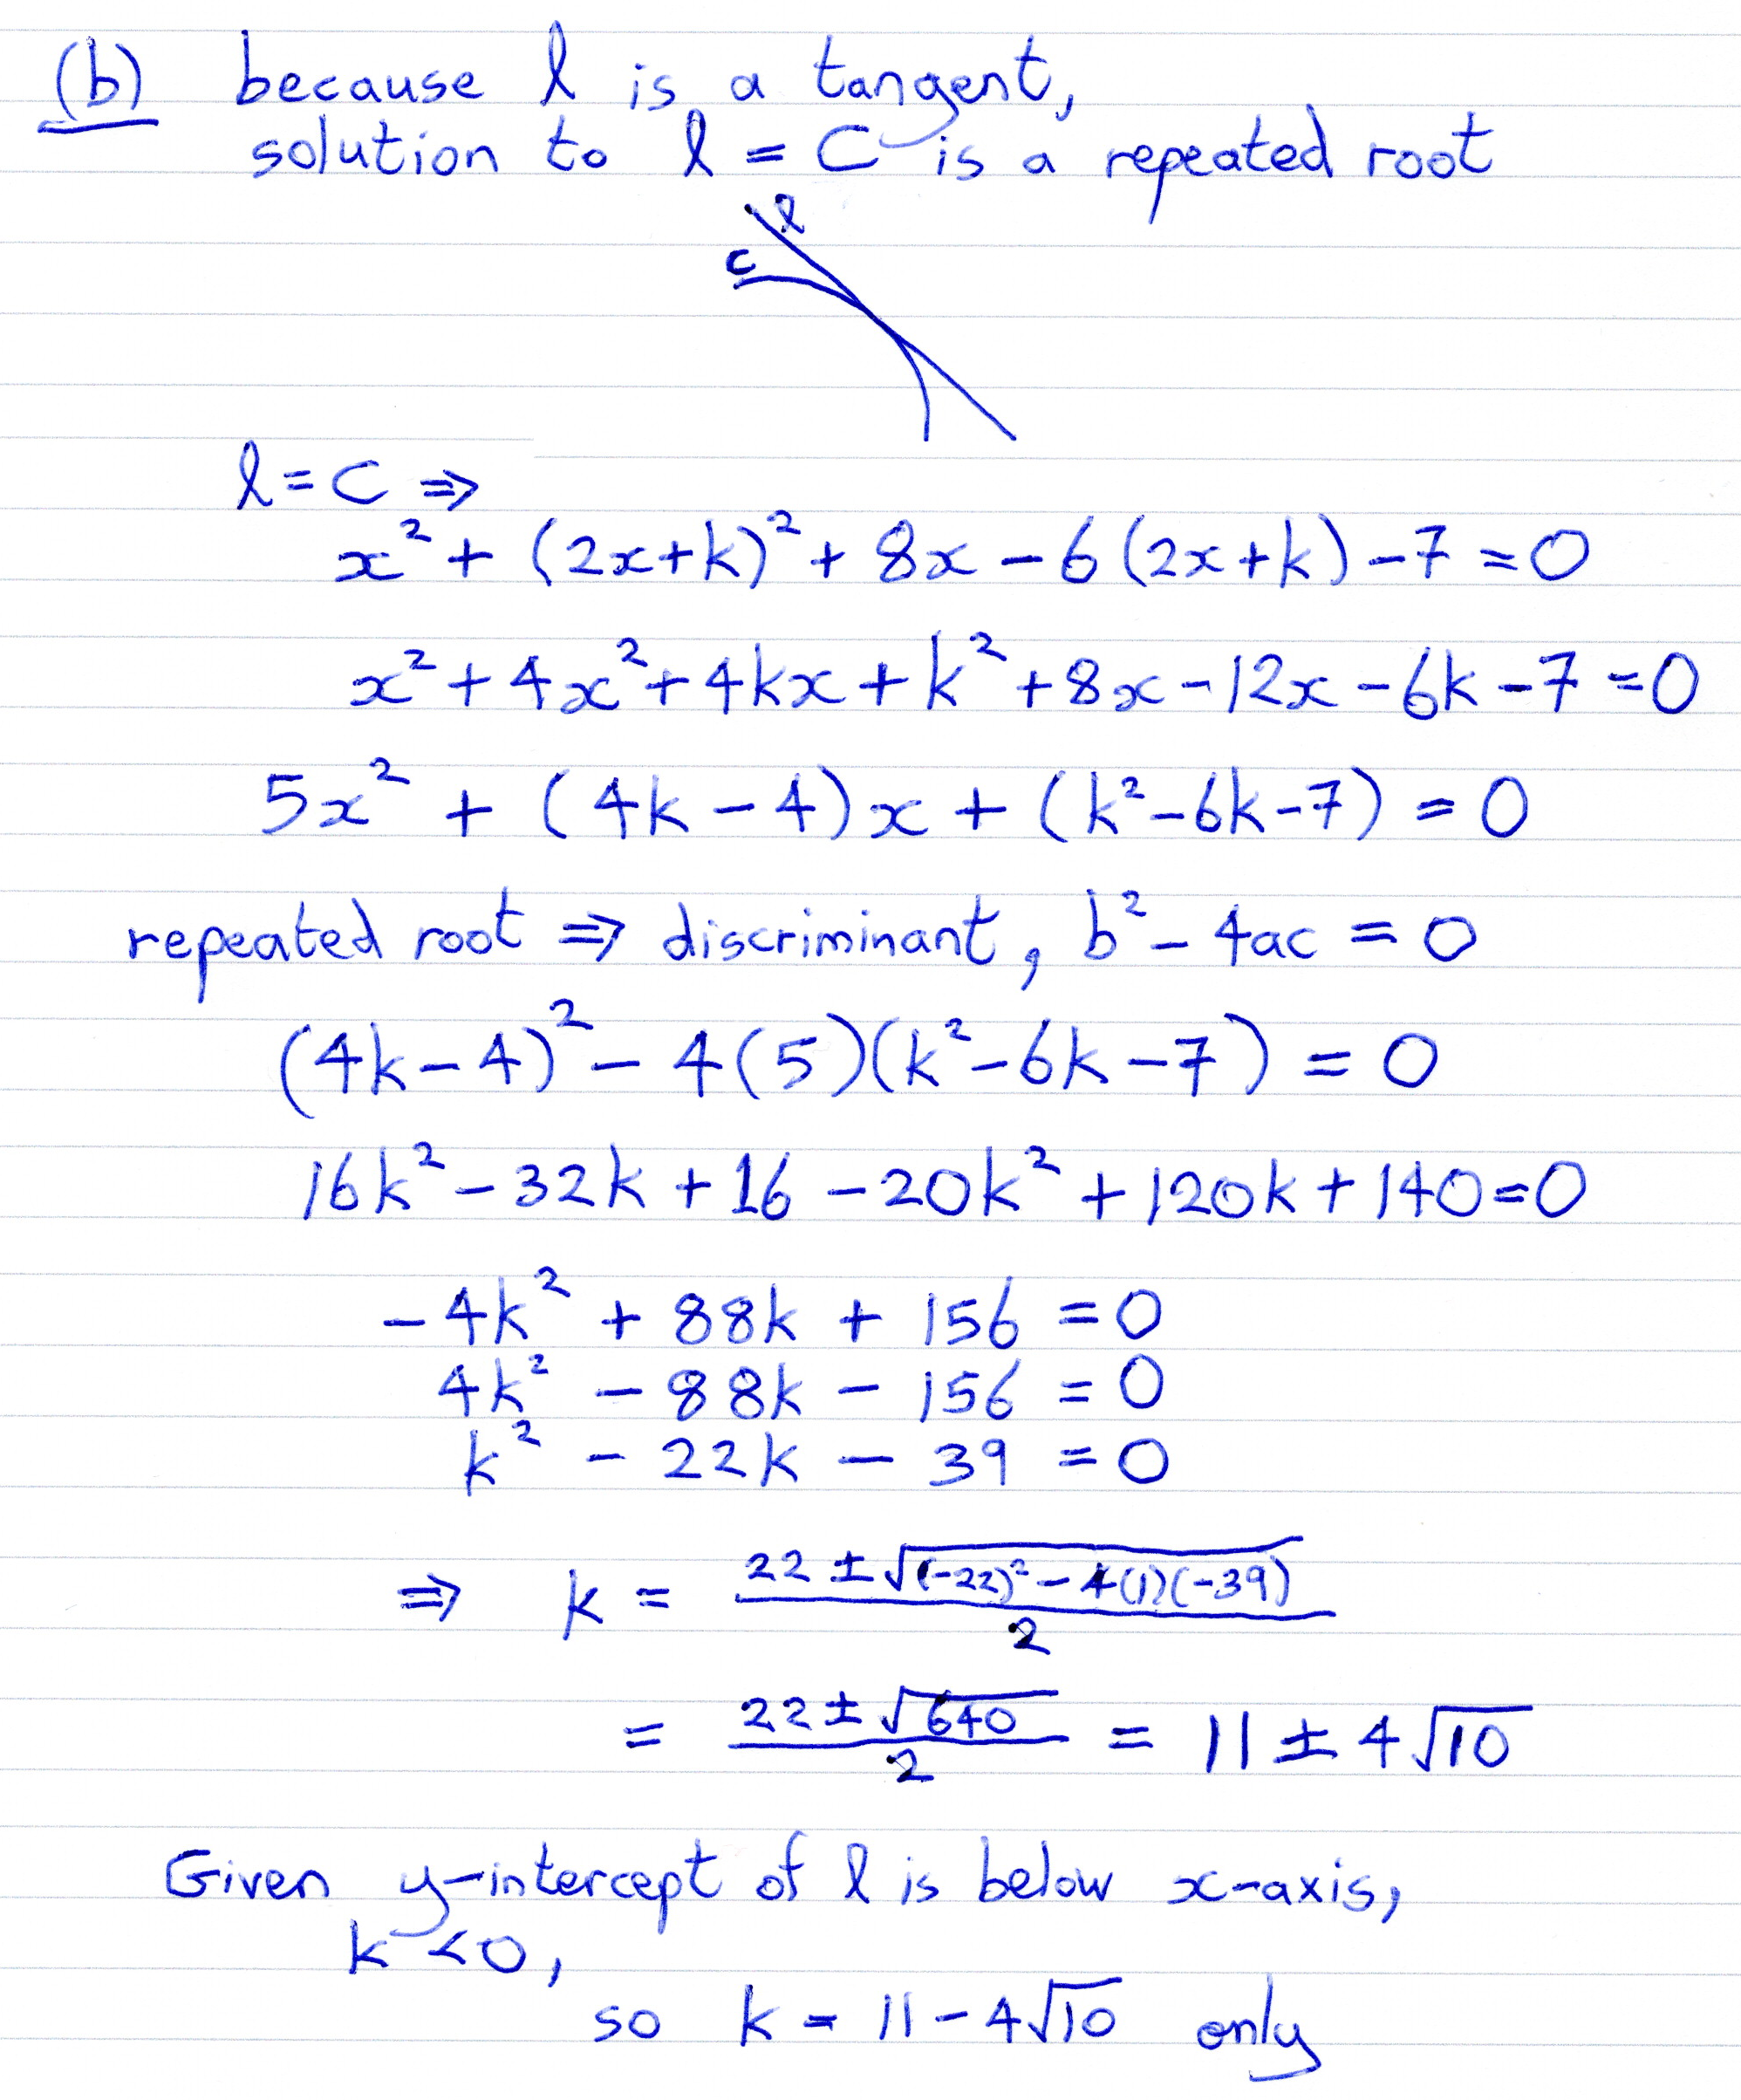 (b) because l is a tangent,
solution to l = C is a repeated root
l
C
l = C ⇒
x² + (2x+k)² + 8x − 6(2x+k) − 7 = 0
x² + 4x² + 4kx + k² + 8x − 12x − 6k − 7 = 0
5x² + (4k − 4)x + (k² − 6k − 7) = 0
repeated root ⇒ discriminant, b² − 4ac = 0
(4k − 4)² − 4(5)(k² − 6k − 7) = 0
16k² − 32k + 16 − 20k² + 120k + 140 = 0
− 4k² + 88k + 156 = 0
4k² − 88k − 156 = 0
k² − 22k − 39 = 0
⇒ k = (22 ± √((−22)² − 4(1)(−39))) / 2
= (22 ± √640) / 2 = 11 ± 4√10
Given y-intercept of l is below x-axis,
k < 0,
so k = 11 − 4√10 only